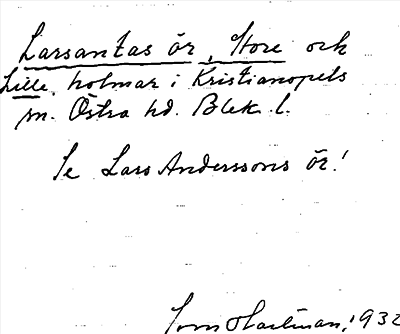 Larsantas ör, Store och
Lille, holmar i Kristianopels
sn. Östra hd. Blek. l.
Se Lars Anderssons ör!
Hartman, 1932